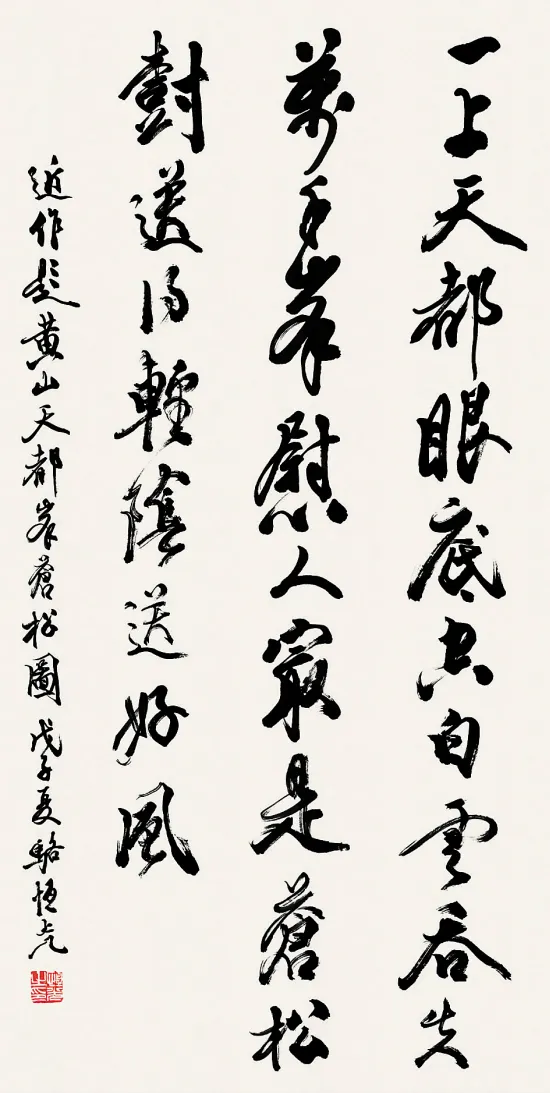 一上天都眼底空白雲吞失
萬千峯慰人㝡是蒼松
尌送得輕陰送好風
近作題黃山天都峯蒼松圖 戊子夏駱恒光